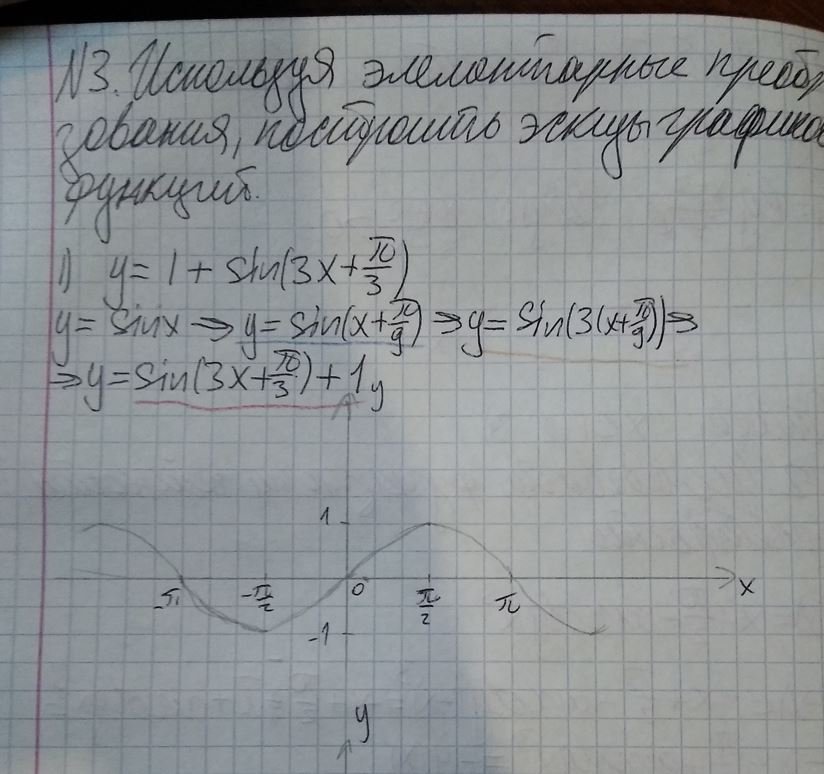 N3. Используя элементарные преобр
зования, построить эскизы графиков
функций.
1) y = 1 + sin(3x + π/3)
y = sin x ⇒ y = sin(x + π/9) ⇒ y = sin(3(x + π/9)) ⇒
⇒ y = sin(3x + π/3) + 1
y
1
-π -π/2 0 π/2 π x
-1
y